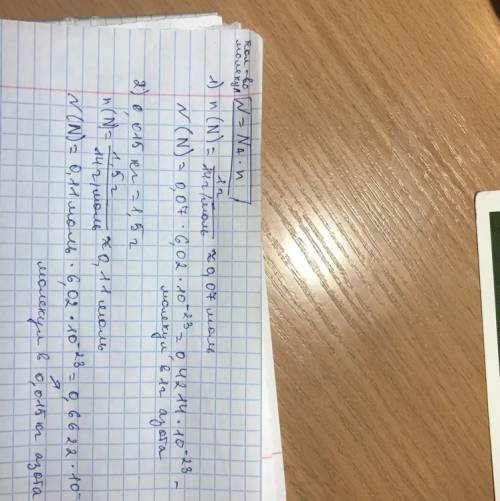 кол-во
молекул
N = NA · n
1) n (N) = 1 г / 14 г/моль ≈ 0,07 моль
N (N) = 0,07 · 6,02 · 10⁻²³ = 0,4214 · 10⁻²³ –
молекул в 1г азота
2) 0,015 кг = 1,5 г
n (N) = 1,5 г / 14 г/моль ≈ 0,11 моль
N (N) = 0,11 моль · 6,02 · 10⁻²³ = 0,6622 · 10⁻
молекул в 0,015 кг азота